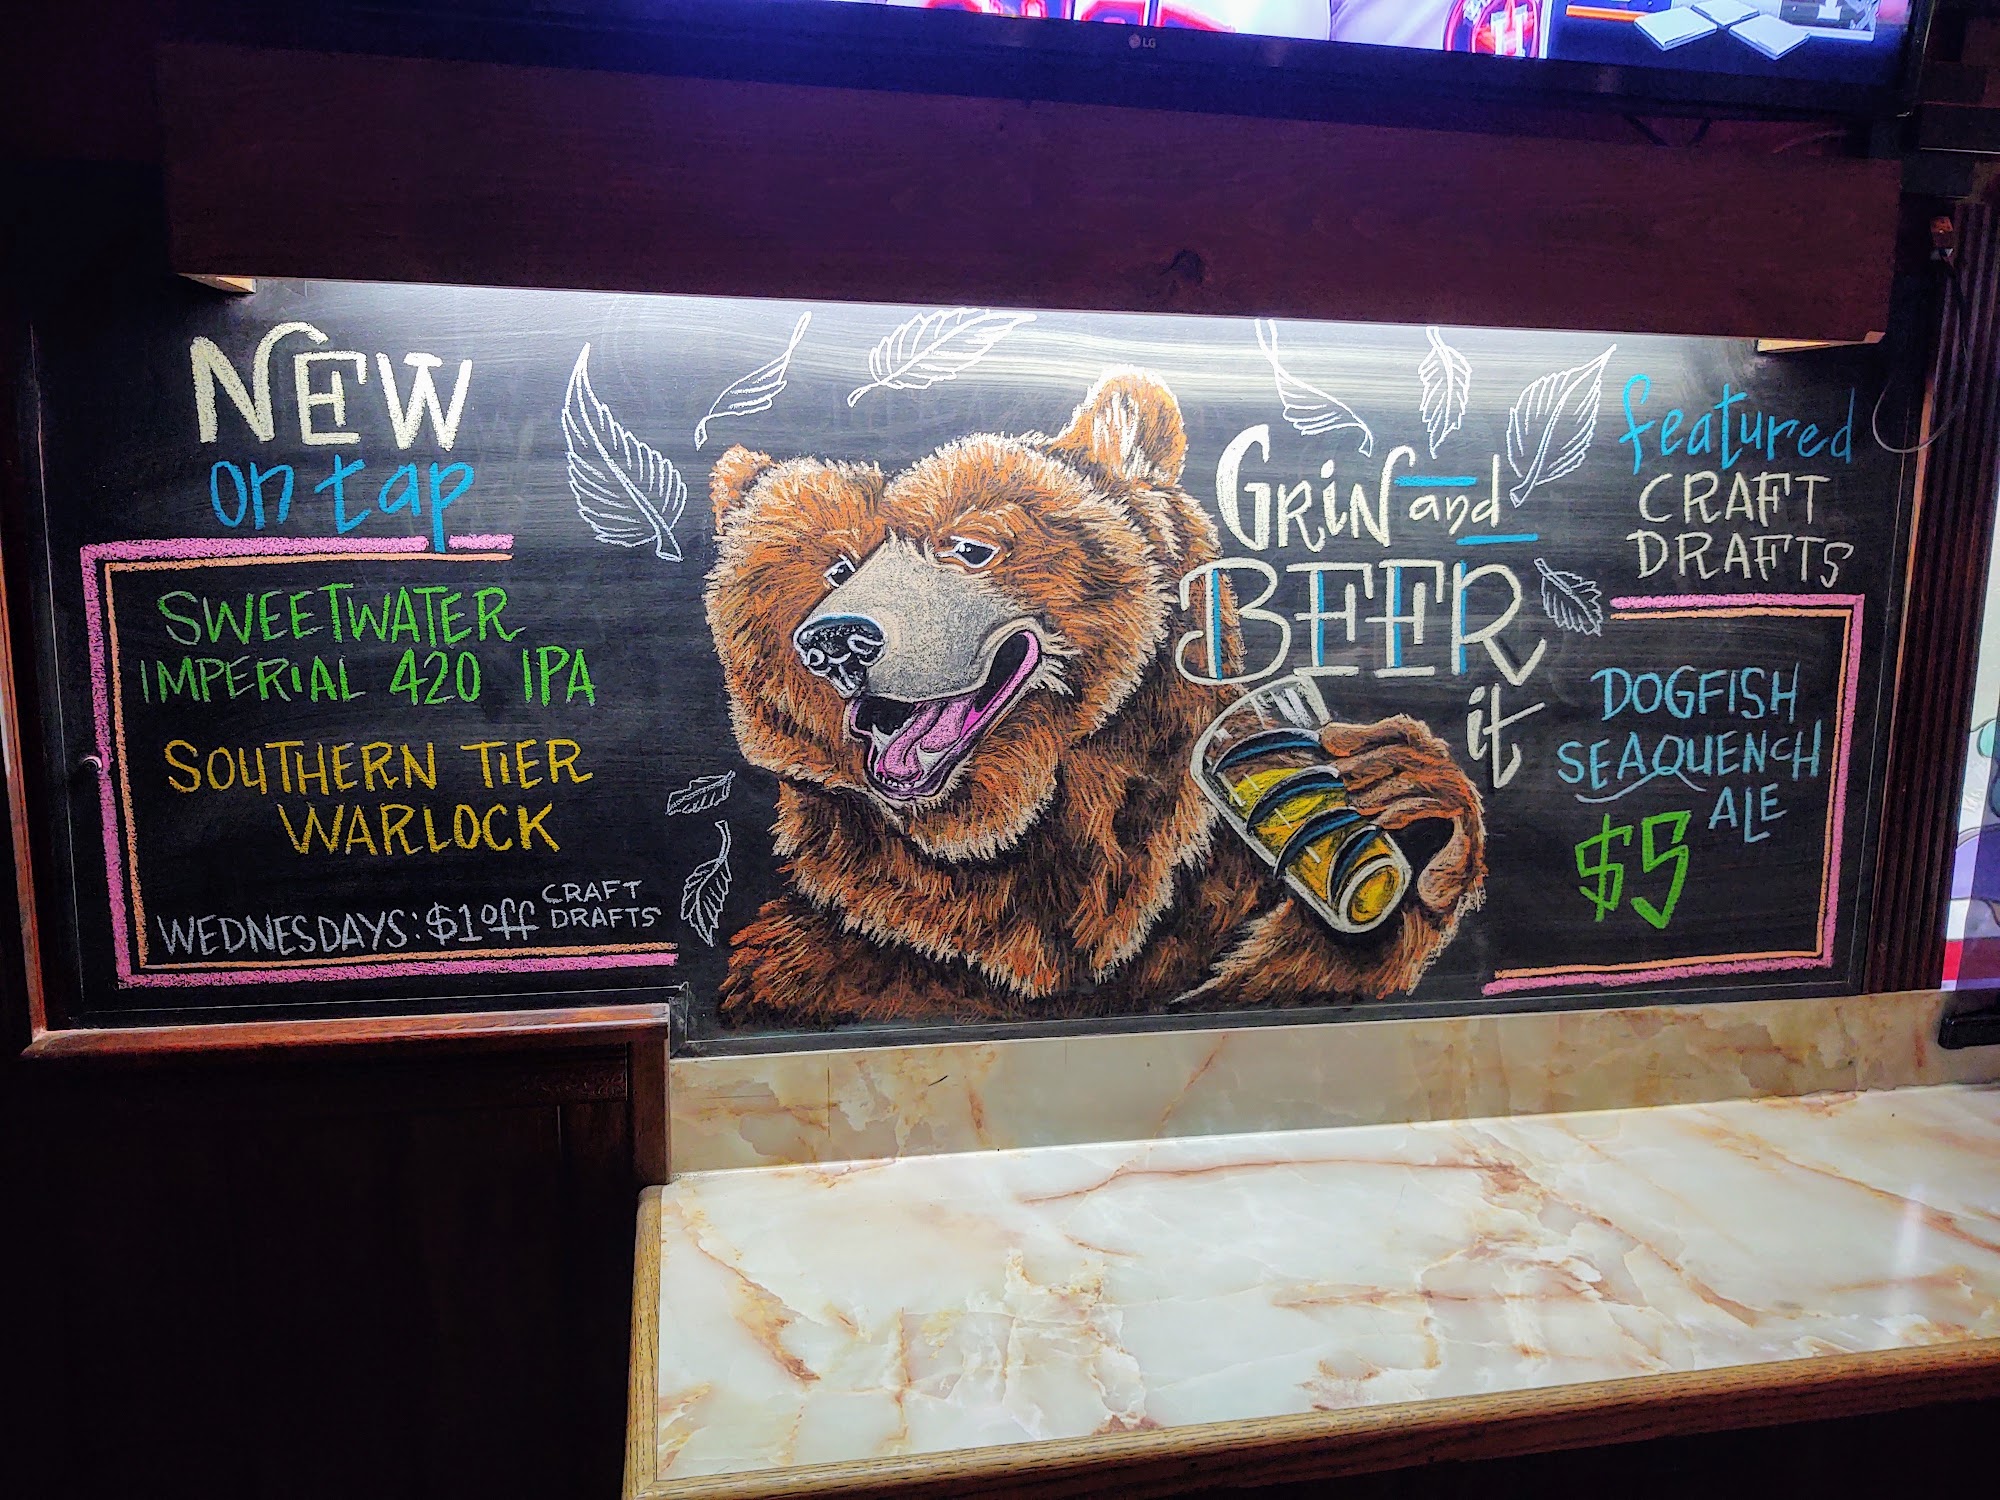 LG
NEW
on tap
SWEETWATER
IMPERIAL 420 IPA
SOUTHERN TIER
WARLOCK
WEDNESDAYS: $1 off CRAFT
DRAFTS
GRIN and
BEER
it
featured
CRAFT
DRAFTS
DOGFISH
SEAQUENCH
ALE
$5